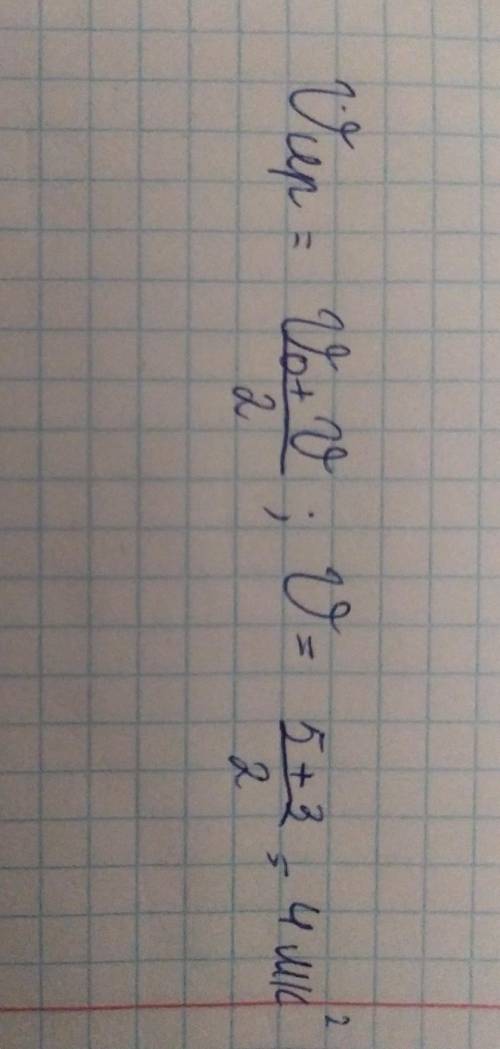 Vср = (V₀ + V)/2 ; V = (5 + 3)/2 = 4 м/с²